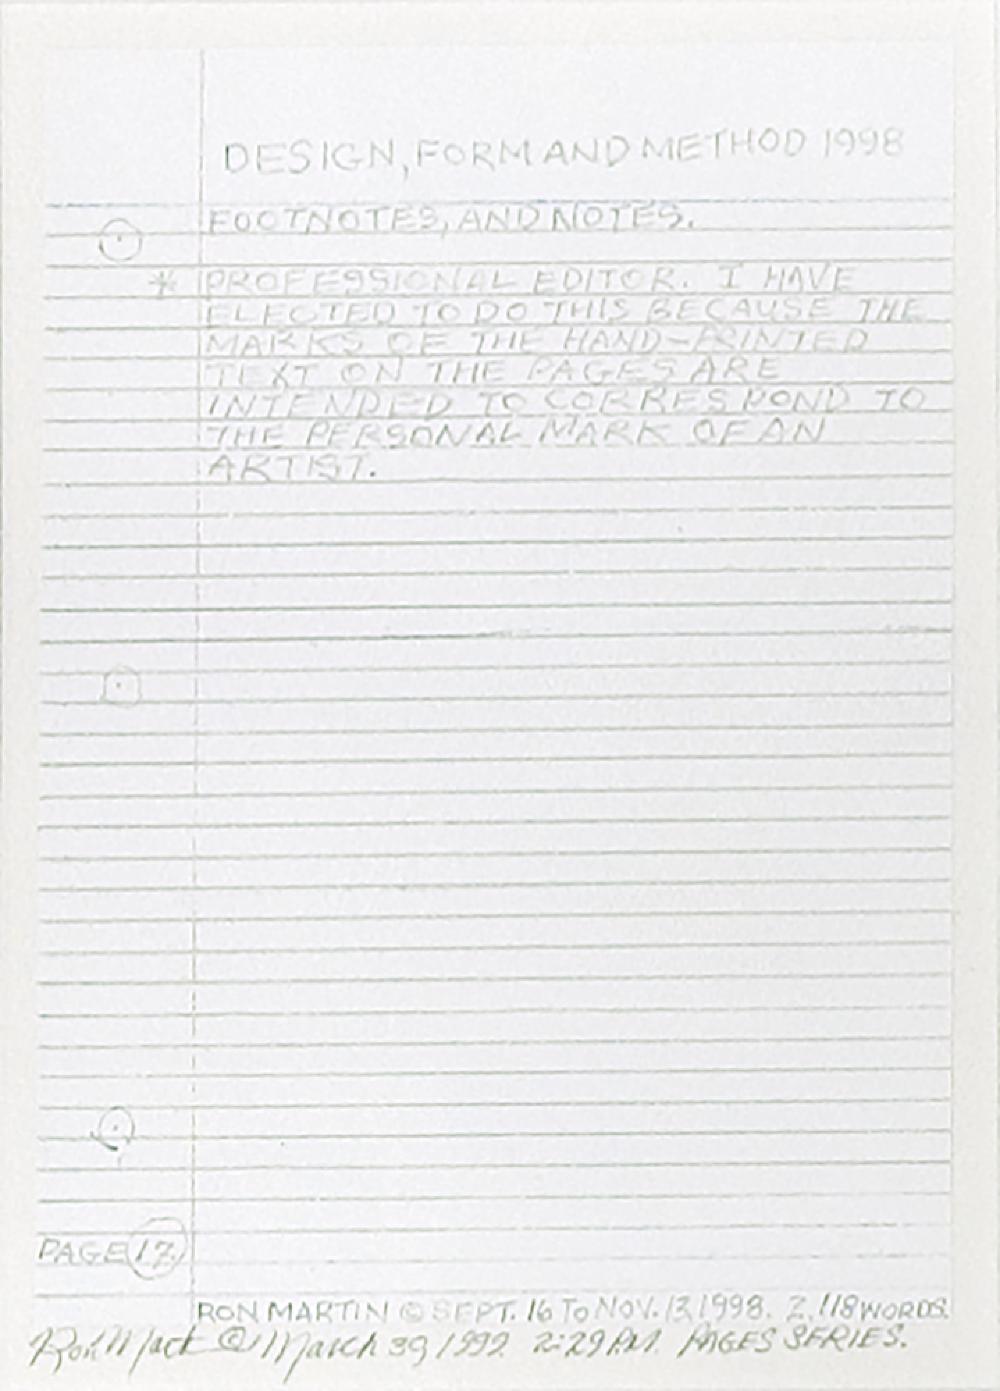 DESIGN, FORM AND METHOD 1998
FOOTNOTES, AND NOTES.
* PROFESSIONAL EDITOR. I HAVE
ELECTED TO DO THIS BECAUSE THE
MARKS OF THE HAND-PRINTED
TEXT ON THE PAGES ARE
INTENDED TO CORRESPOND TO
THE PERSONAL MARK OF AN
ARTIST.
PAGE 17
RON MARTIN © SEPT. 16 TO NOV. 13, 1998. 2,118 WORDS.
Ron © March 1999 2:29 P.M. PAGES SERIES.